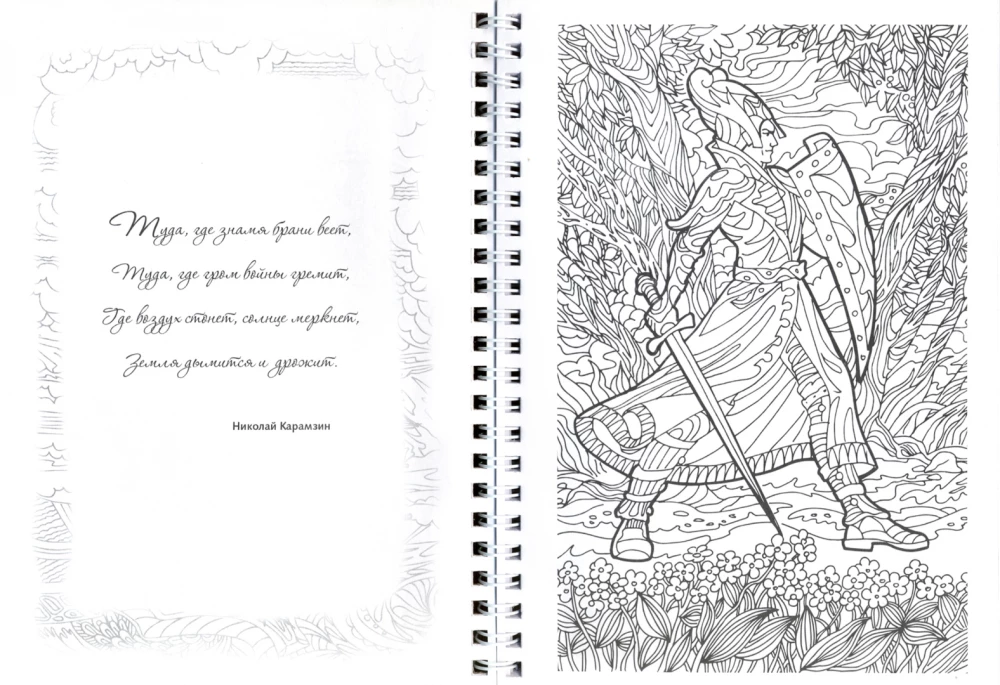 Туда, где знамя брани веет,
Туда, где гром войны гремит,
Где воздух стонет, солнце меркнет,
Земля дымится и дрожит.
Николай Карамзин